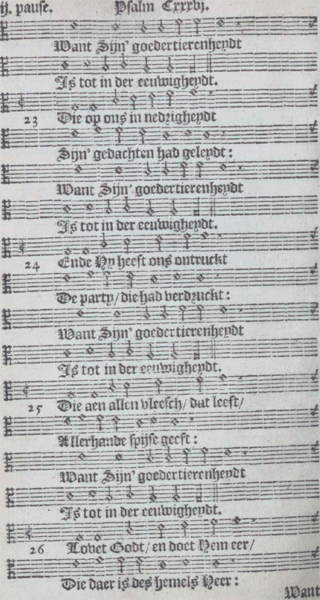 ij. pause. Psalm Cxxxvj.
Want Sijn' goedertierenheydt
Is tot in der eeuwigheydt.
23 Die op ons in nedrigheydt
Sijn' gedachten had geleydt:
Want Sijn' goedertierenheydt
Is tot in der eeuwigheydt.
24 Ende Hy heeft ons ontruckt
De party/die had verdruckt:
Want Sijn' goedertierenheydt
Is tot in der eeuwigheydt.
25 Die aen allen vleesch/dat leeft/
Allerhande spijse geeft:
Want Sijn' goedertierenheydt
Is tot in der eeuwigheydt.
26 Lovet Godt/en doet Hem eer/
Die daer is des hemels Heer:
Want